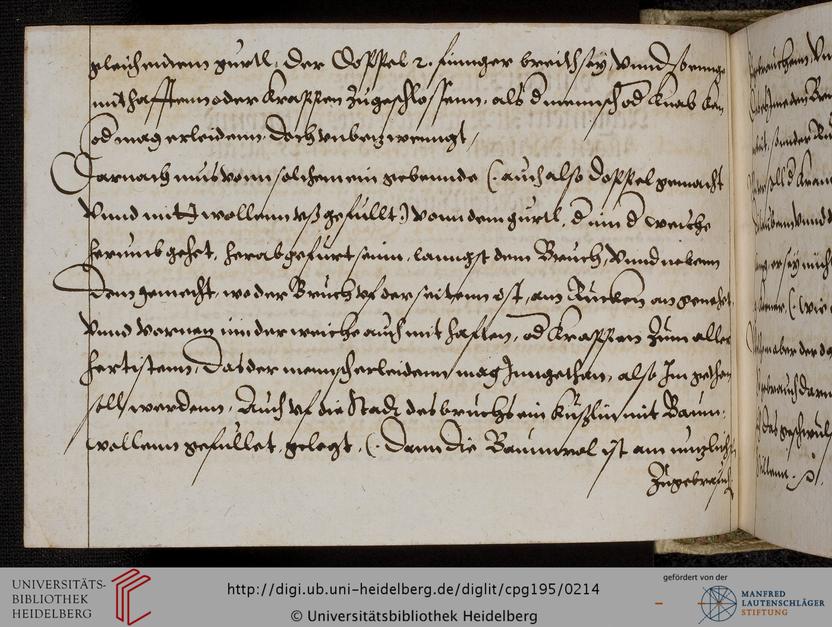 gleichendem gurtl, der Doppel 2. finnger breith sey, vnnd so ennge
mit hafftenn oder krappen zugeschlossenn, als d mennsch od knab kan
od mag erleidenn, doch vnbezwenngt,
Darnach mus vonn solchem ein gebennde (: auch also doppel gemacht
vnnd mitt wollenn vß gefullt :) vonn dem gurtl, d inn d weiche
herumb gehet, herab gefürt seinn, lanngst dem Bruch, vnnd nebenn
dem gemecht, wo der Bruch vf der seitenn ist, am Rucken an genehet
vnnd vornen inn der weiche auch mit hafften, od krappen zum aller
hertistenn, das der mennsch erleidenn mag Inngethan, also In gethon
soll werdenn, Auch vf die stadt des bruchs ein kußlin mit Baum-
wollenn gefullet, gelegt, (: Dann die Baumwol ist am nuzlichst
Zugebrauch
UNIVERSITÄTS-
BIBLIOTHEK
HEIDELBERG
http://digi.ub.uni-heidelberg.de/diglit/cpg195/0214
© Universitätsbibliothek Heidelberg
gefördert von der
MANFRED
LAUTENSCHLÄGER
STIFTUNG